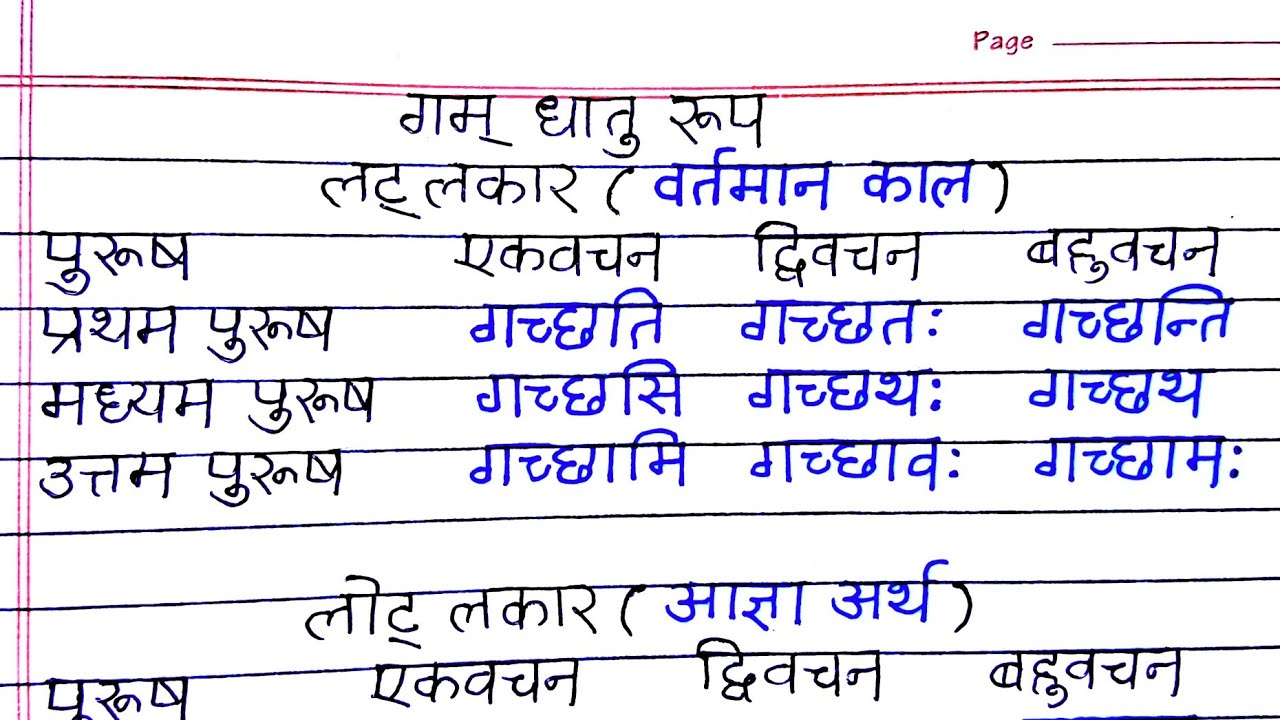 Page
गम् धातु रूप
लट् लकार ( वर्तमान काल )
पुरूष एकवचन द्विवचन बहुवचन
प्रथम पुरूष गच्छति गच्छतः गच्छन्ति
मध्यम पुरूष गच्छसि गच्छथः गच्छथ
उत्तम पुरूष गच्छामि गच्छावः गच्छामः
लोट् लकार ( आज्ञा अर्थ )
पुरूष एकवचन द्विवचन बहुवचन